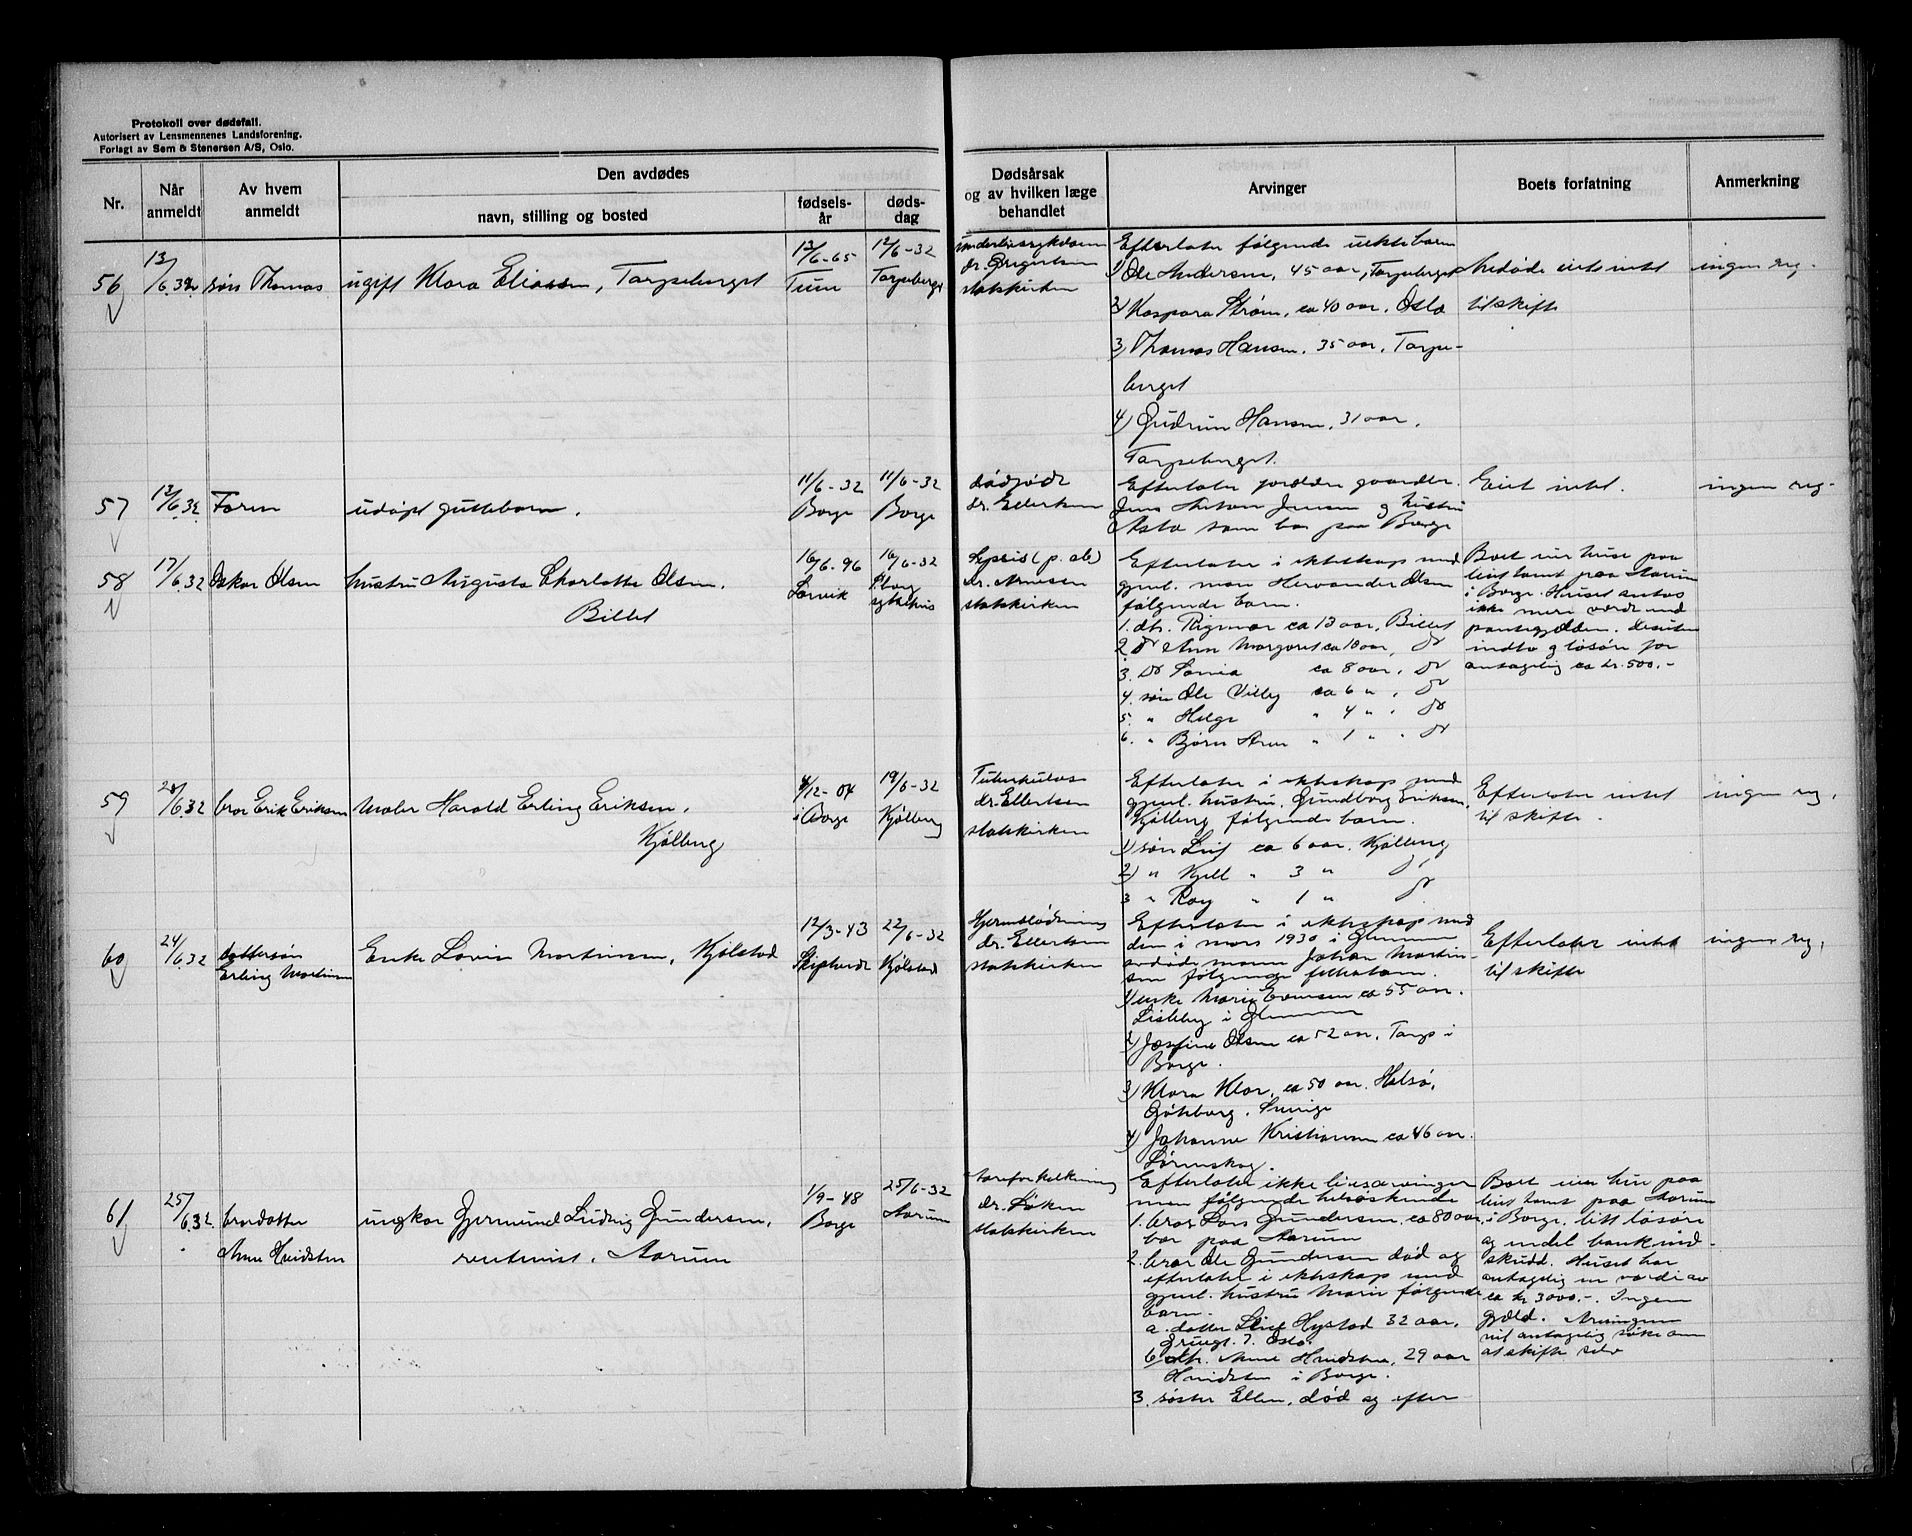 Protokoll over dødsfall.
Autorisert av Lensmennenes Landsforening.
Forlagt av Sem & Stenersen A/S, Oslo.
Nr.
Når
anmeldt
Av hvem
anmeldt
Den avdødes
navn, stilling og bosted
fødsels-
år
døds-
dag
Dødsårsak
og av hvilken læge
behandlet
Arvinger
Boets forfatning
Anmerkning
56
13/6.32
søn Thomas
ugift Klara Eliassen, Torpeberget
12/6-65
Tune
12/6-32
Torpeberget
underlivssykdom
statskirken
Efterlater følgende uekte barn
1) Ole Andersen, 45 aar, Torpeberget
2) Kaspara Strøm, ca 40 aar, Oslo
3) Thomas Hansen, 35 aar, Torpe-
berget
4) Gudrun Hansen, 31 aar,
Torpeberget.
Avdøde eiet intet
til skifte
ingen reg.
57
12/6.32
Faren
udøpt guttebarn.
11/6-32
Borge
11/6-32
Borge
dødfødt
dr. Ellertsen
Efterlater forældre gaardbr.
Jens Anton Jensen og hustru
Asta som bor paa Borge
Eiet intet.
ingen reg.
58
17/6.32
Oskar Olsen
hustru Augusta Charlotte Olsen.
Billet
16/6-96
Larvik
16/6-32
Sborg
sykehus
Sepsis (p. ab)
dr. Arnesen
statskirken
Efterlater i ekteskap med
gjenl. man Hervander Olsen
følgende barn.
1. dtr. Rigmor ca 13 aar, Billet
2. do Ann Margaret ca 10 aar, do
3. do Sonia ca 8 aar, do
4. søn Ole Villy ca 6 " , do
5. " Helge " 4 " , do
6. " Bjørn Arne " 1 " , do
Boet eier huse paa
leiet tomt paa Aarum
i Borge. Huset antas
ikke mere værdt end
pantegjælden. Desuten
indbo og løsøre for
antagelig ca kr. 500.-
59
20/6.32
bror Erik Eriksen
Maler Harald Erling Eriksen,
Kjølberg
4/12-04
i Borge
19/6-32
Kjølberg
Tuberkulose
dr. Ellertsen
statskirken
Efterlater i ekteskap med
gjenl. hustru Gundborg Eriksen,
Kjølberg følgende barn.
1) søn Leif ca 6 aar. Kjølberg
2) " Kjell " 3 " do
3 " Roy " 1 " do
Efterlater intet
til skifte.
ingen reg.
60
24/6.32
dattersøn
Erling Martinsen
Enke Lovise Martinsen, Kjølstad
12/3-43
22/6-32
Kjølstad
Hjerneblødning
dr. Ellertsen
statskirken
Efterlater i ekteskap med
den i mars 1930 i Glemmen
avdøde mann Johan Martin-
sen følgende fellesbarn.
1) enke Marie Evensen ca 55 aar.
Lisleby i Glemmen
2) Josefine Olsen ca 52 aar, Torp i
Borge.
3) Klara Klar, ca 50 aar. Halsø,
Gøteborg, Sverige
4) Johanne Kristiansen ca 46 aar.
Lørenskog.
Efterlater intet
til skifte
ingen reg.
61
25/6.32
brordatter
Anne Hvidsten
ungkar Gjermund Ludvig Gundersen,
rentenist, Aarum
1/9-48
Borge
25/6-32
Aarum
aareforkalkning
dr. Løken
statskirken
Efterlater ikke livsarvinger
men følgende helsøskende
1. bror Lars Gundersen, ca 80 aar
bor paa Aarum
2. bror Ole Gundersen død og
efterlatet i ekteskap med
gjenl. hustru Marie følgende
barn.
a. datter Hystad 32 aar,
7. Oslo.
b. dtr. Anne Hvidsten, 29 aar
Hvidsten i Borge.
3. søster Ellen, død og efter
Boet eier hus paa
leiet tomt paa Aarum
i Borge, litt løsøre
og endel bankind-
skudd. Huset har
antagelig en værdi av
ca kr 3000.-. Ingen
gjæld. Arvingene
vil antagelig søke om
at skifte selv